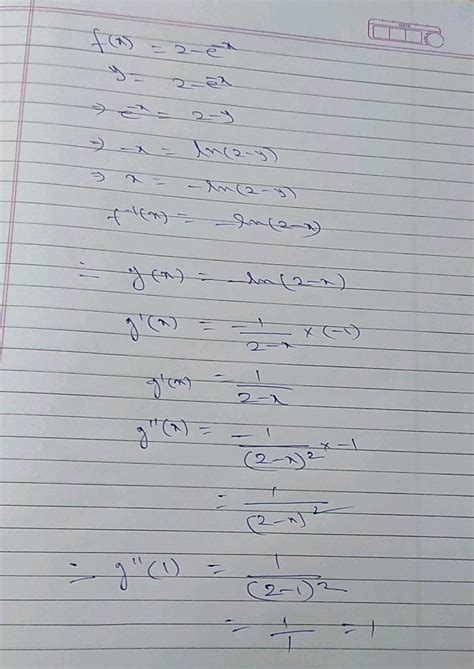 f(x) = 2-e^-x
y = 2-e^-x
⇒ e^-x = 2-y
⇒ -x = ln(2-y)
⇒ x = -ln(2-y)
f^-1(x) = -ln(2-x)
∴ g(x) = -ln(2-x)
g'(x) = -1/(2-x) × (-1)
g'(x) = 1/(2-x)
g''(x) = -1/(2-x)^2 × -1
= 1/(2-x)^2
∴ g''(1) = 1/(2-1)^2
= 1/1 = 1